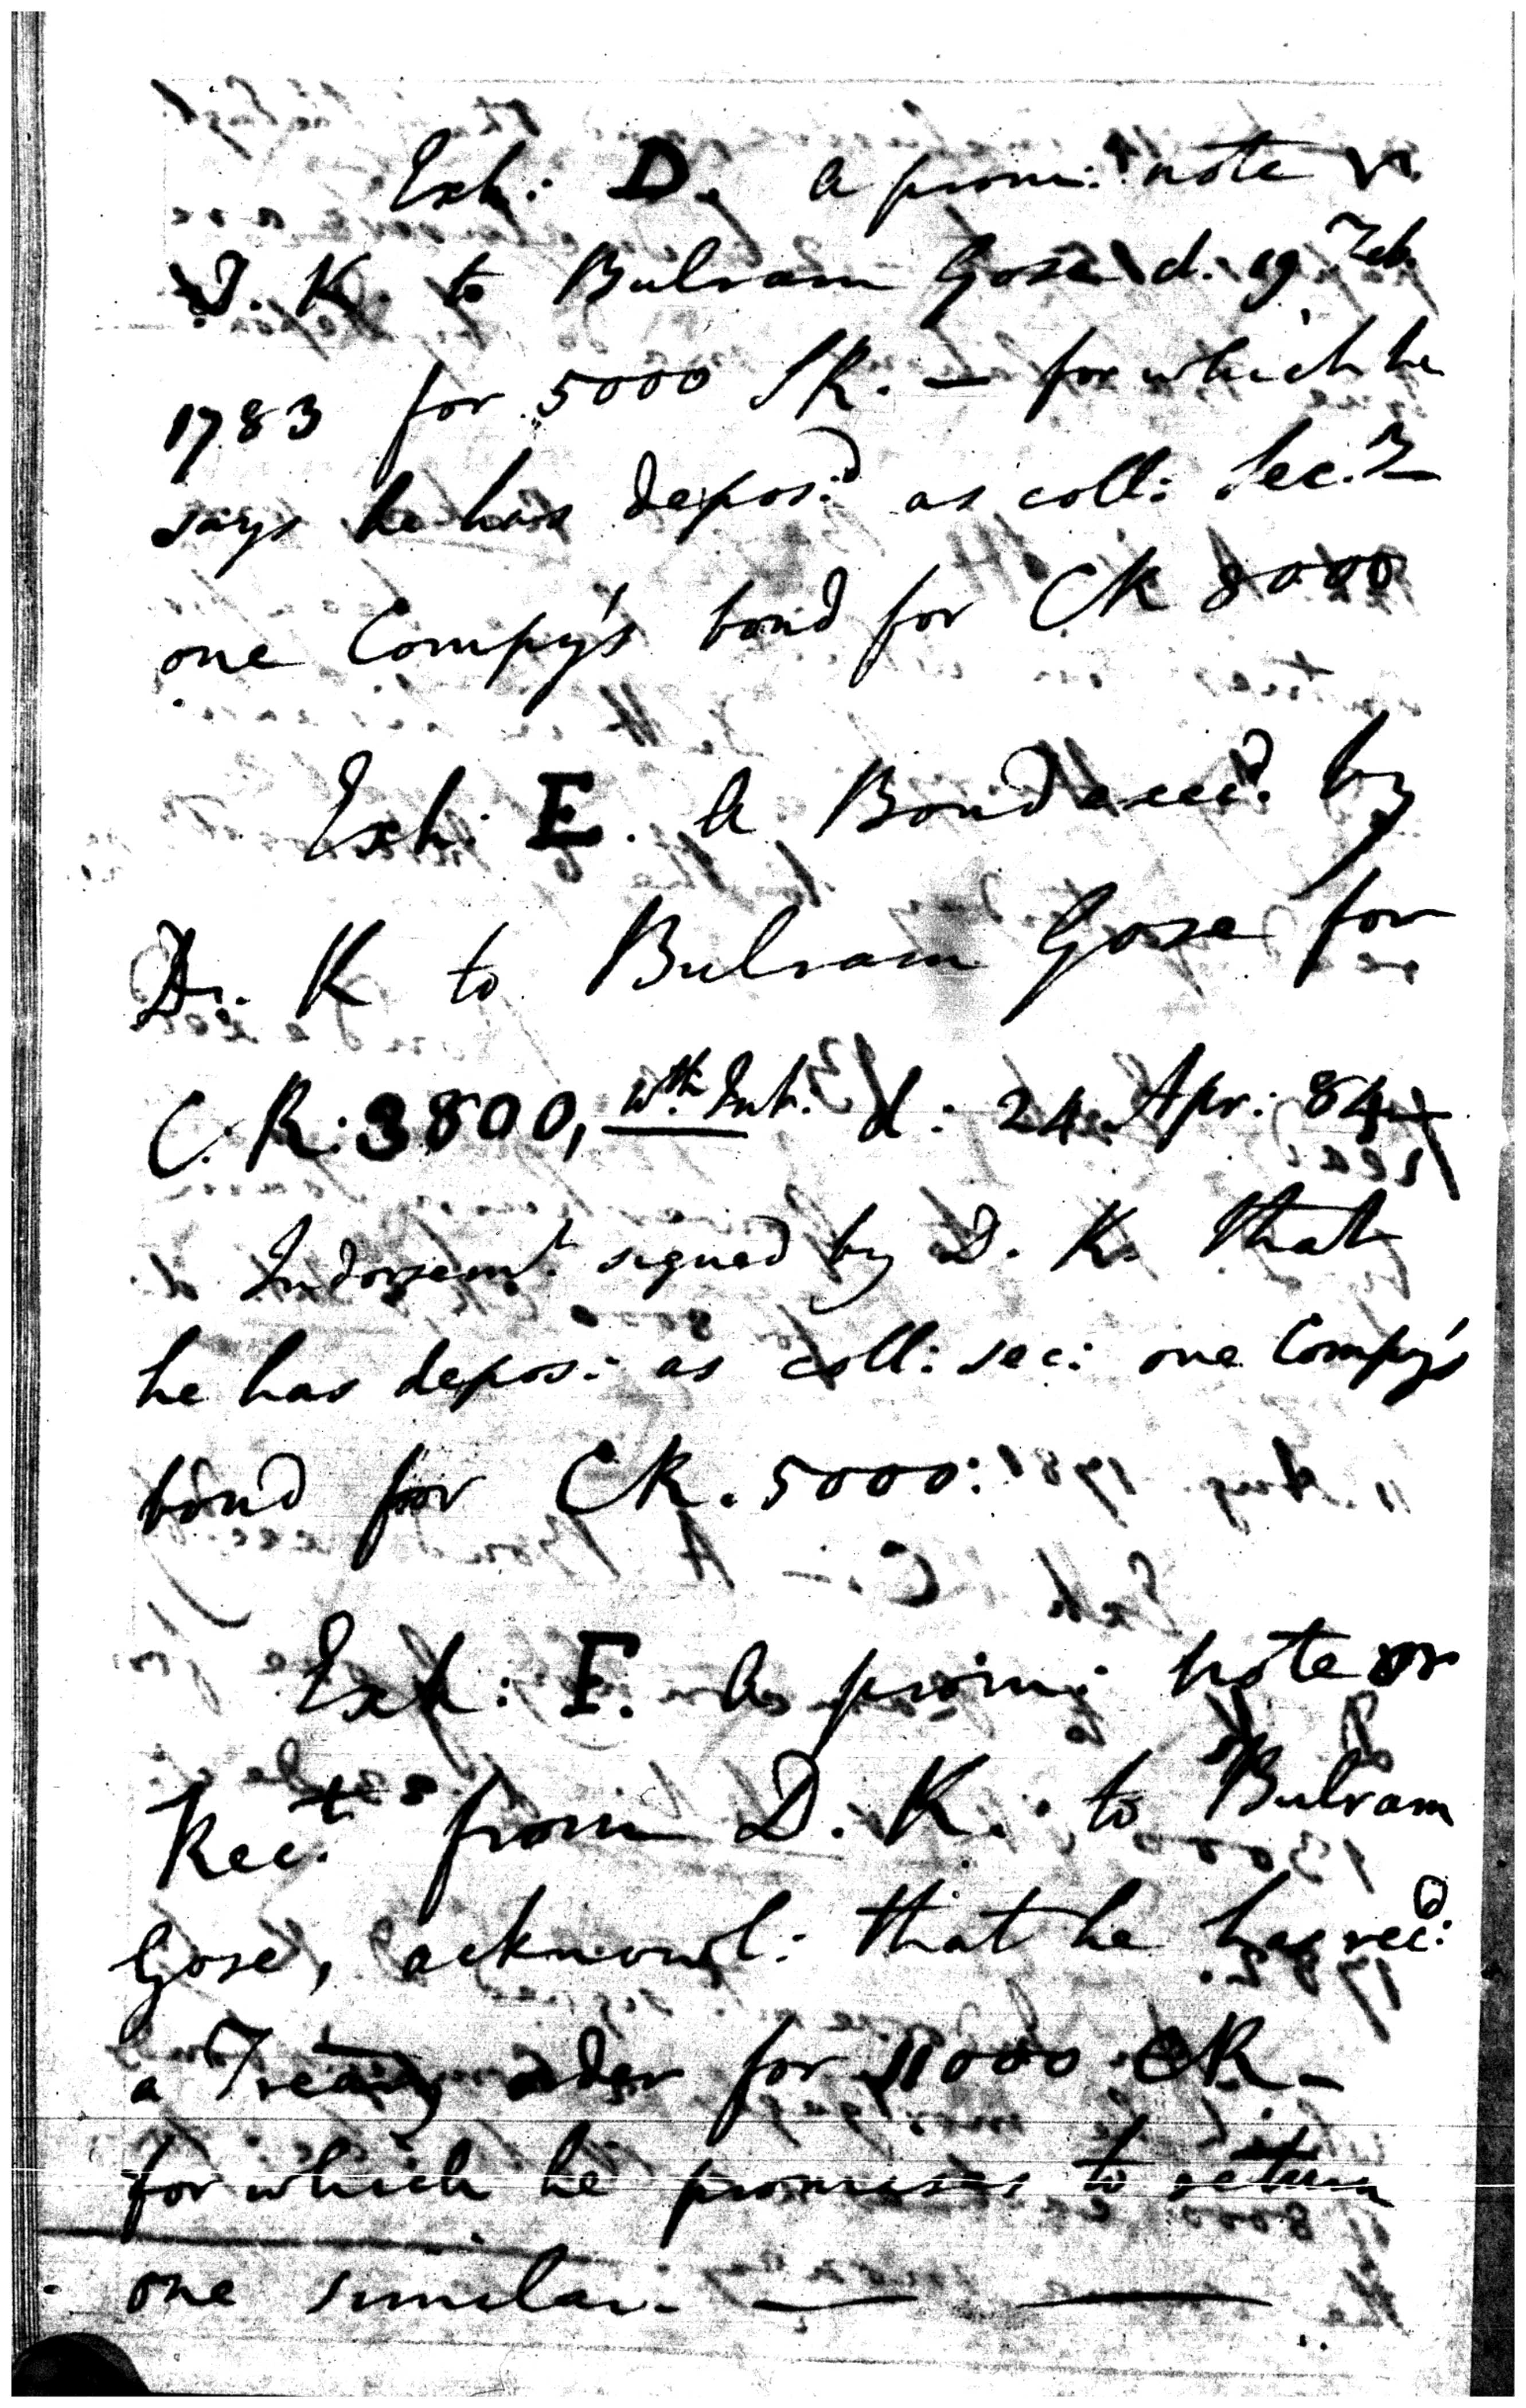 Exh: D. A prom: note
D. K. to Bulram Gose d. 19 Feb.
1783 for 5000 SR. — for which he
says he has depos:d as coll: Sec.
one Compy's bond for CR 8000
Exh: E. A Bond exec:d by
D. K to Bulram Gose for
C. R: 3800, wth Int. d: 24 Apr: 84
Indorsemt signed by D. K. that
he has depos: as coll: sec: one Compy's
bond for CR. 5000:
Exh: F. A prom: note or
Rec:t from D. K. to Bulram
Gose, acknowl: that he has rec:d
a Treasy order for 11000 CR —
for which he promises to return
one similar. —— ——